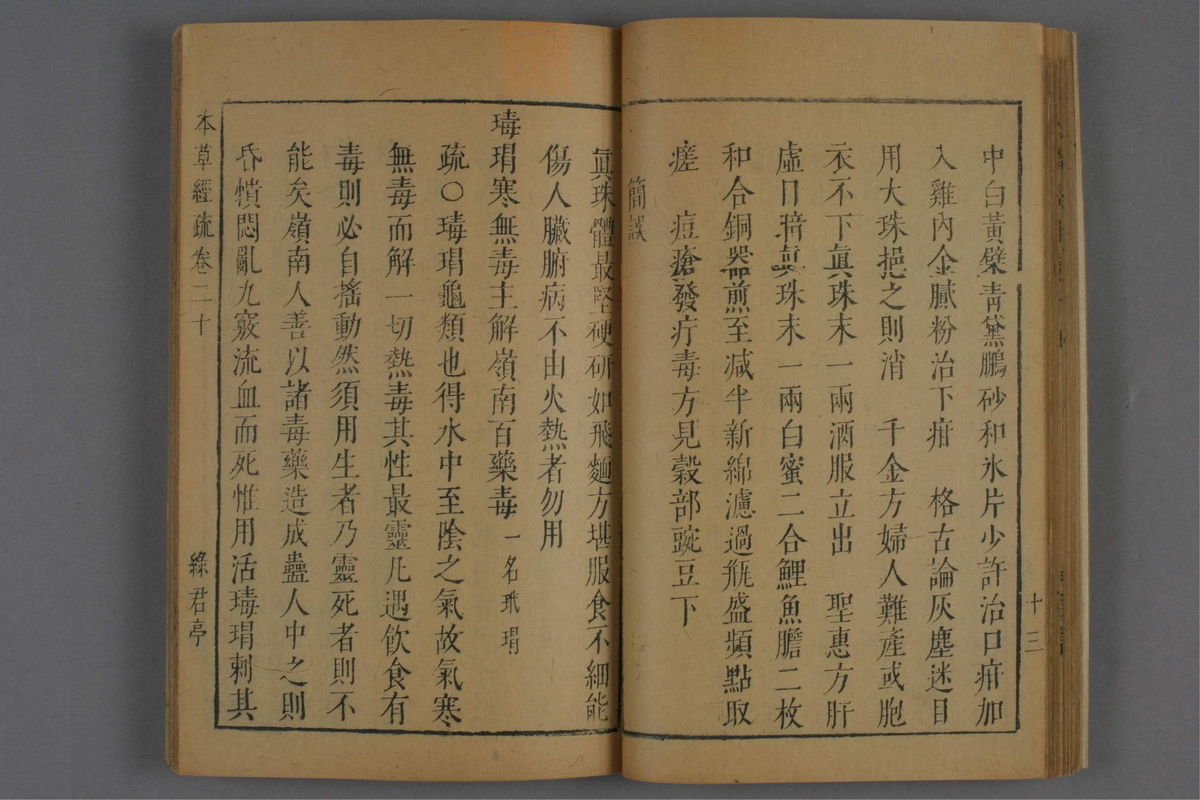 中白黃檗青黛鵬砂和氷片少許治口疳加
入雞內金膩粉治下疳　格古論灰塵迷目
用大珠挹之則消　千金方婦人難產或胞
衣不下眞珠末一兩酒服立出　聖惠方肝
虛目暗眞珠末一兩白蜜二合鯉魚膽二枚
和合銅器煎至减半新綿濾過瓶盛頻點取
瘥　痘瘡發疔毒方見穀部豌豆下
簡誤
眞珠體最堅硬研如飛麵方堪服食不細能
傷人臟腑病不由火熱者勿用
瑇瑁寒無毒主解嶺南百藥毒一名玳瑁
疏○瑇瑁龜類也得水中至陰之氣故氣寒
無毒而解一切熱毒其性最靈凡遇飲食有
毒則必自搖動然須用生者乃靈死者則不
能矣嶺南人善以諸毒藥造成蠱人中之則
昏憒悶亂九竅流血而死惟用活瑇瑁刺其
本草經疏卷二十
綠君亭
十三